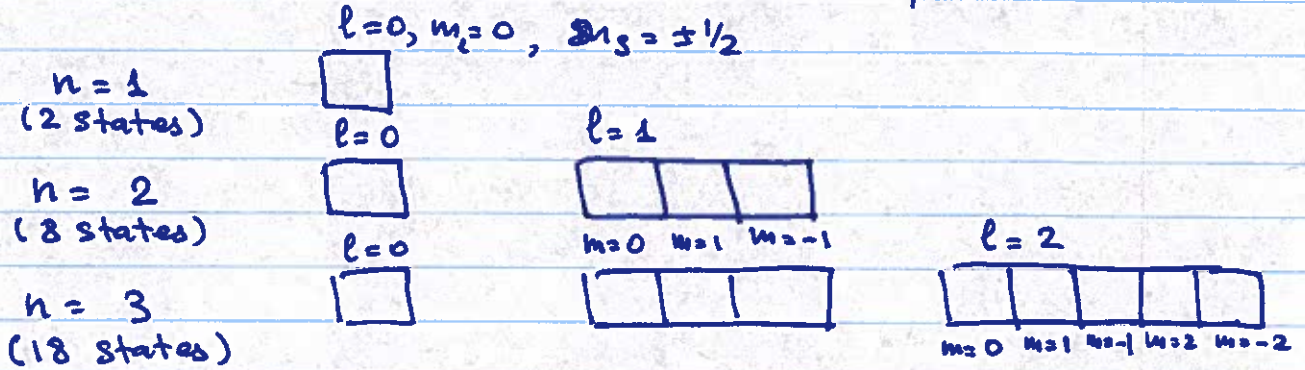 l=0, m_l=0, m_s = ±1/2
n = 1
(2 states)
l=0 l=1
n = 2
(8 states)
m=0 m=1 m=-1
l=0 l=2
n = 3
(18 states)
m=0 m=1 m=-1 m=2 m=-2